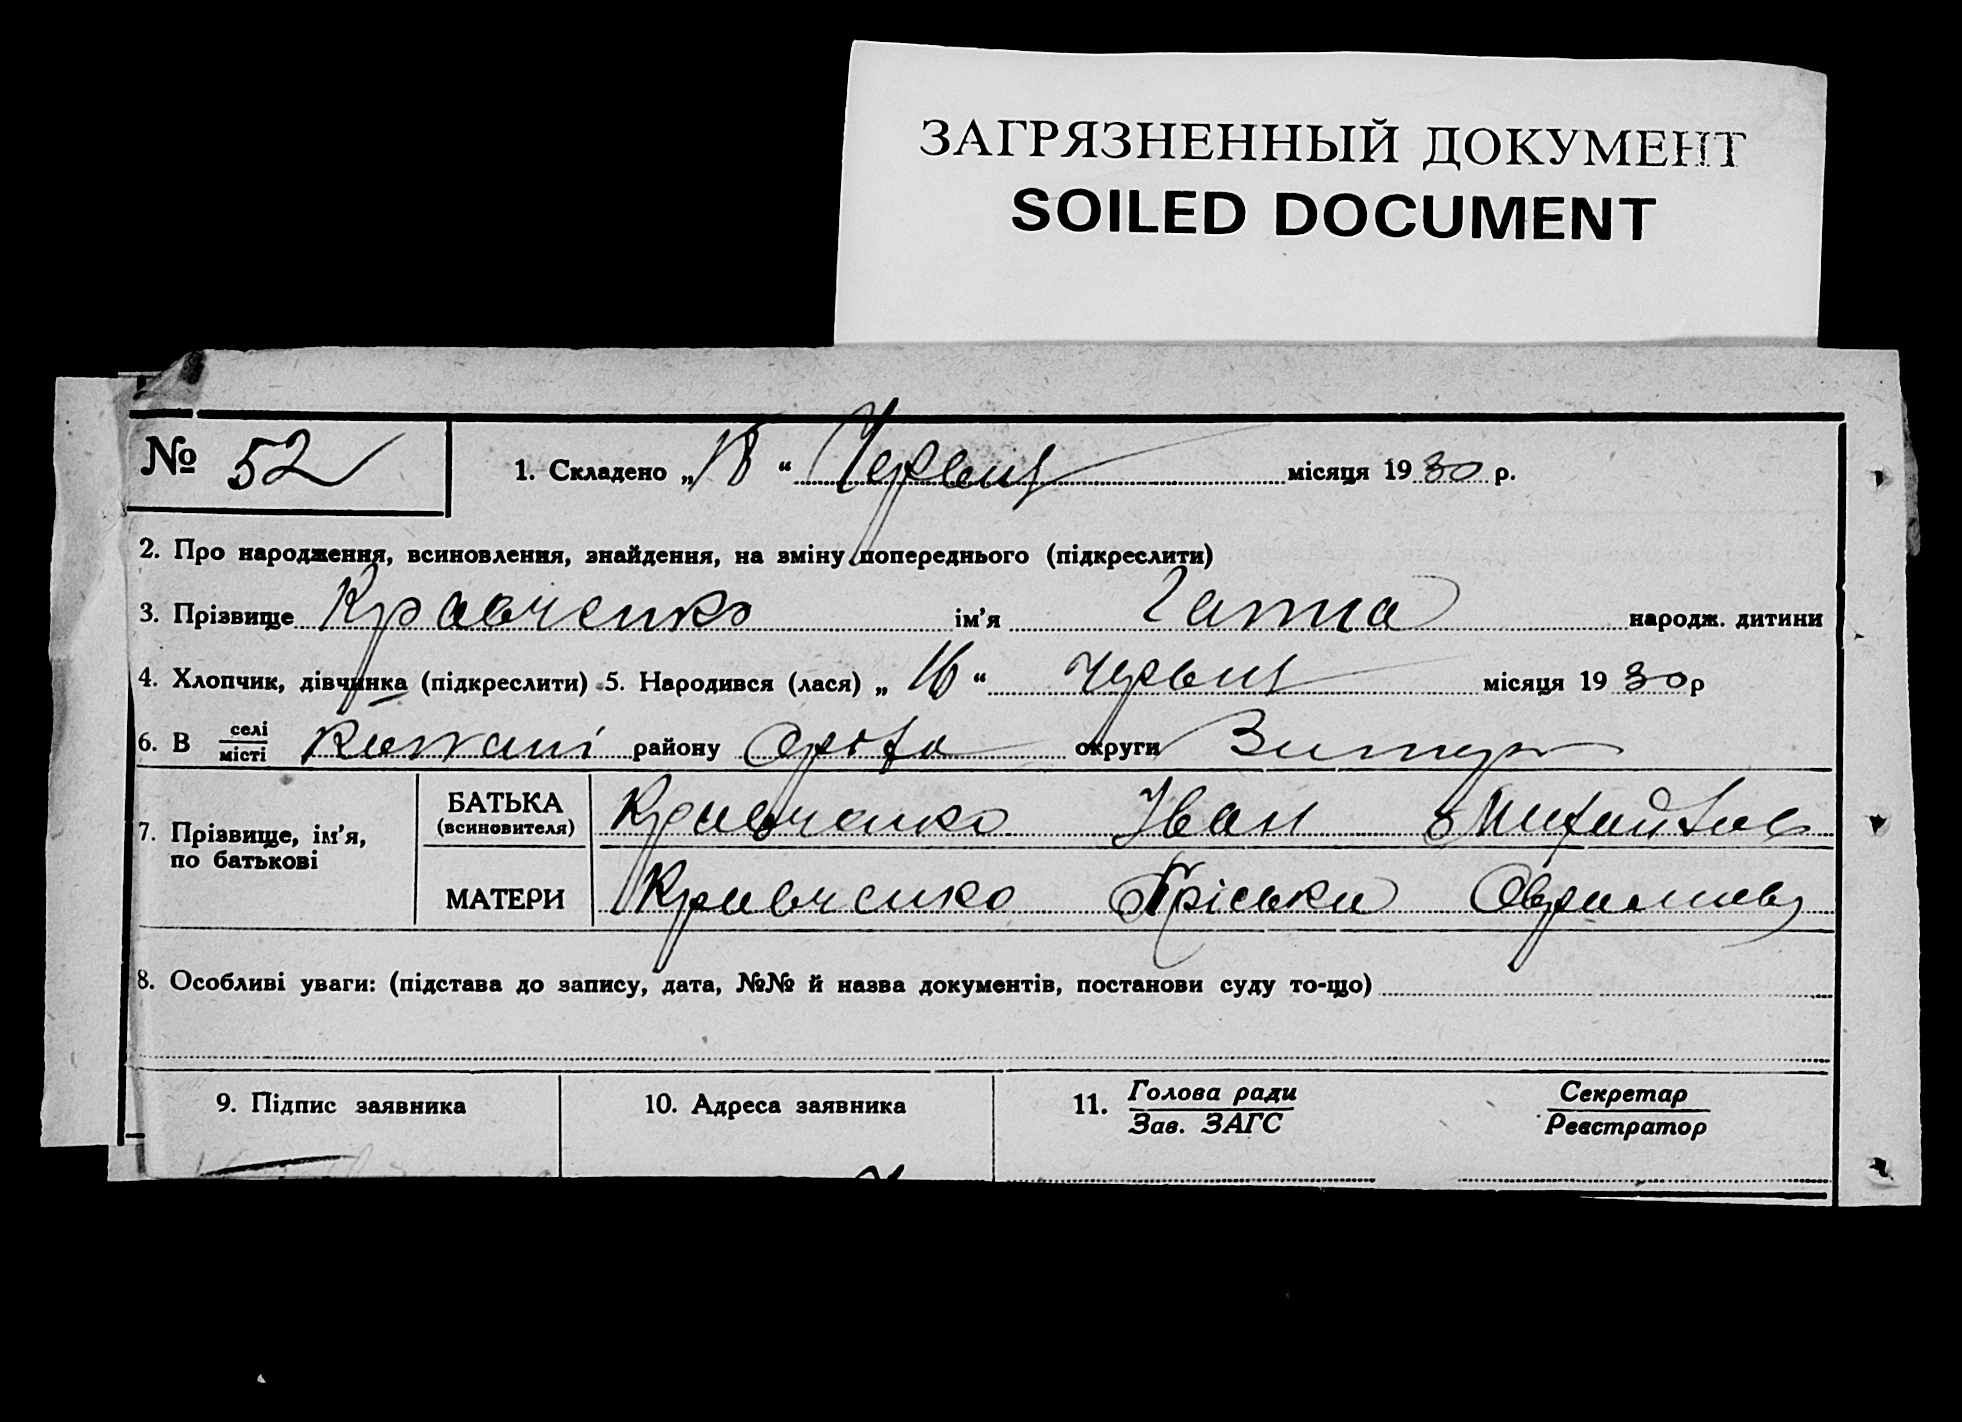 ЗАГРЯЗНЕННЫЙ ДОКУМЕНТ
SOILED DOCUMENT
№ 52 1. Складено „18“ Червня місяця 1930 р.
2. Про народження, всиновлення, знайдення, на зміну попереднього (підкреслити)
3. Прізвище Кравченко ім’я Ганна народж. дитини
4. Хлопчик, дівчинка (підкреслити) 5. Народився (лася) „16“ Червня місяця 1930р
6. В селі місті району округи
7. Прізвище, ім’я, по батькові
БАТЬКА (всиновителя) Кравченко Іван Михайлов
МАТЕРИ Кравченко Пріська
8. Особливі уваги: (підстава до запису, дата, №№ й назва документів, постанови суду то-що)
9. Підпис заявника 10. Адреса заявника 11. Голова ради Секретар
Зав. ЗАГС Реєстратор